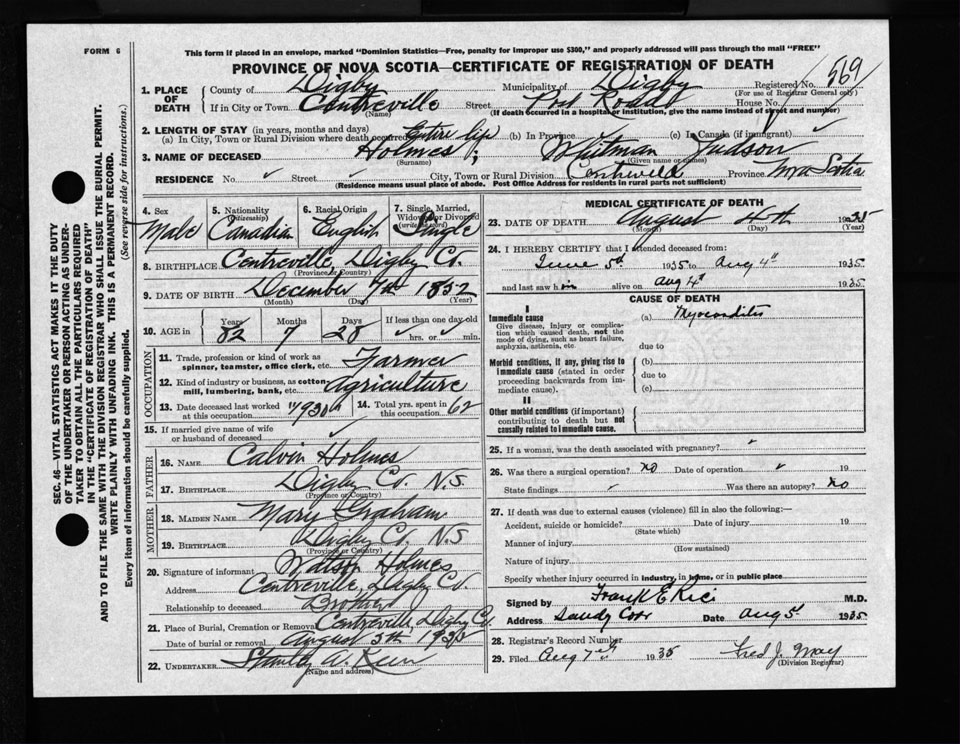 FORM 6
This form if placed in an envelope, marked "Dominion Statistics—Free, penalty for improper use $300," and properly addressed will pass through the mail "FREE"
PROVINCE OF NOVA SCOTIA—CERTIFICATE OF REGISTRATION OF DEATH
569
1. PLACE OF DEATH
County of Digby Municipality of Digby Registered No.
(For use of Registrar General only)
If in City or Town Centreville Street Post Road House No.
(Name) (If death occurred in a hospital or institution, give the name instead of street and number)
2. LENGTH OF STAY (in years, months and days)
(a) In City, Town or Rural Division where death occurred Entire life (b) In Province (c) In Canada (if immigrant) ✓
3. NAME OF DECEASED Holmes ; Whitman Judson
(Surname) (Given names)
RESIDENCE No. ✓ Street ✓ City, Town or Rural Division Centreville Province Nova Scotia
(Residence means usual place of abode. Post Office Address for residents in rural parts not sufficient)
4. Sex Male
5. Nationality (Citizenship) Canadian
6. Racial Origin English
7. Single, Married, Widowed or Divorced (write the word) Single
8. BIRTHPLACE Centreville, Digby Co.
(Province or Country)
9. DATE OF BIRTH December 1852
(Month) (Day) (Year)
10. AGE in Years 82 Months 7 Days 28 If less than one day old
✓ hrs. or ✓ min.
OCCUPATION
11. Trade, profession or kind of work as spinner, teamster, office clerk, etc. Farmer
12. Kind of industry or business, as cotton mill, lumbering, bank, etc. Agriculture
13. Date deceased last worked at this occupation 1930
14. Total yrs. spent in this occupation 62
15. If married give name of wife or husband of deceased ✓
FATHER
16. NAME Calvin Holmes
17. BIRTHPLACE Digby Co. N.S.
(Province or Country)
MOTHER
18. MAIDEN NAME Mary Graham
19. BIRTHPLACE Digby Co. N.S
(Province or Country)
20. Signature of informant Watson Holmes
Address Centreville, Digby Co.
Relationship to deceased Brother
21. Place of Burial, Cremation or Removal Centreville Digby Co.
Date of burial or removal August 5th 1935
22. UNDERTAKER Stanley A.
(Name and address)
MEDICAL CERTIFICATE OF DEATH
23. DATE OF DEATH August 4th 1935
(Month) (Day) (Year)
24. I HEREBY CERTIFY that I attended deceased from:
June 5th 1935 to Aug 4th 1935
and last saw him alive on Aug 4th 1935
CAUSE OF DEATH
I
Immediate cause (a) Myocarditis
Give disease, injury or complication which caused death, not the mode of dying, such as heart failure, asphyxia, asthenia, etc.
due to
Morbid conditions, if any, giving rise to immediate cause (stated in order proceeding backwards from immediate cause).
(b)
due to
(c)
II
Other morbid conditions (if important) contributing to death but not causally related to immediate cause.
25. If a woman, was the death associated with pregnancy? ✓
26. Was there a surgical operation? No Date of operation ✓ 19
State findings ✓ Was there an autopsy? No
27. If death was due to external causes (violence) fill in also the following:—
Accident, suicide or homicide? Date of injury 19
(State which)
Manner of injury
(How sustained)
Nature of injury
Specify whether injury occurred in industry, in home, or in public place
Signed by Frank E Rice M.D.
Address Sandy Cove Date Aug 5th 1935
28. Registrar's Record Number
29. Filed Aug 7th 1935 Fred J. May
(Division Registrar)
SEC. 46—VITAL STATISTICS ACT MAKES IT THE DUTY
OF THE UNDERTAKER OR PERSON ACTING AS UNDER-
TAKER TO OBTAIN ALL THE PARTICULARS REQUIRED
IN THE "CERTIFICATE OF REGISTRATION OF DEATH"
AND TO FILE THE SAME WITH THE DIVISION REGISTRAR WHO SHALL ISSUE THE BURIAL PERMIT.
WRITE PLAINLY WITH UNFADING INK. THIS IS A PERMANENT RECORD.
Every item of information should be carefully supplied. (See reverse side for instructions.)